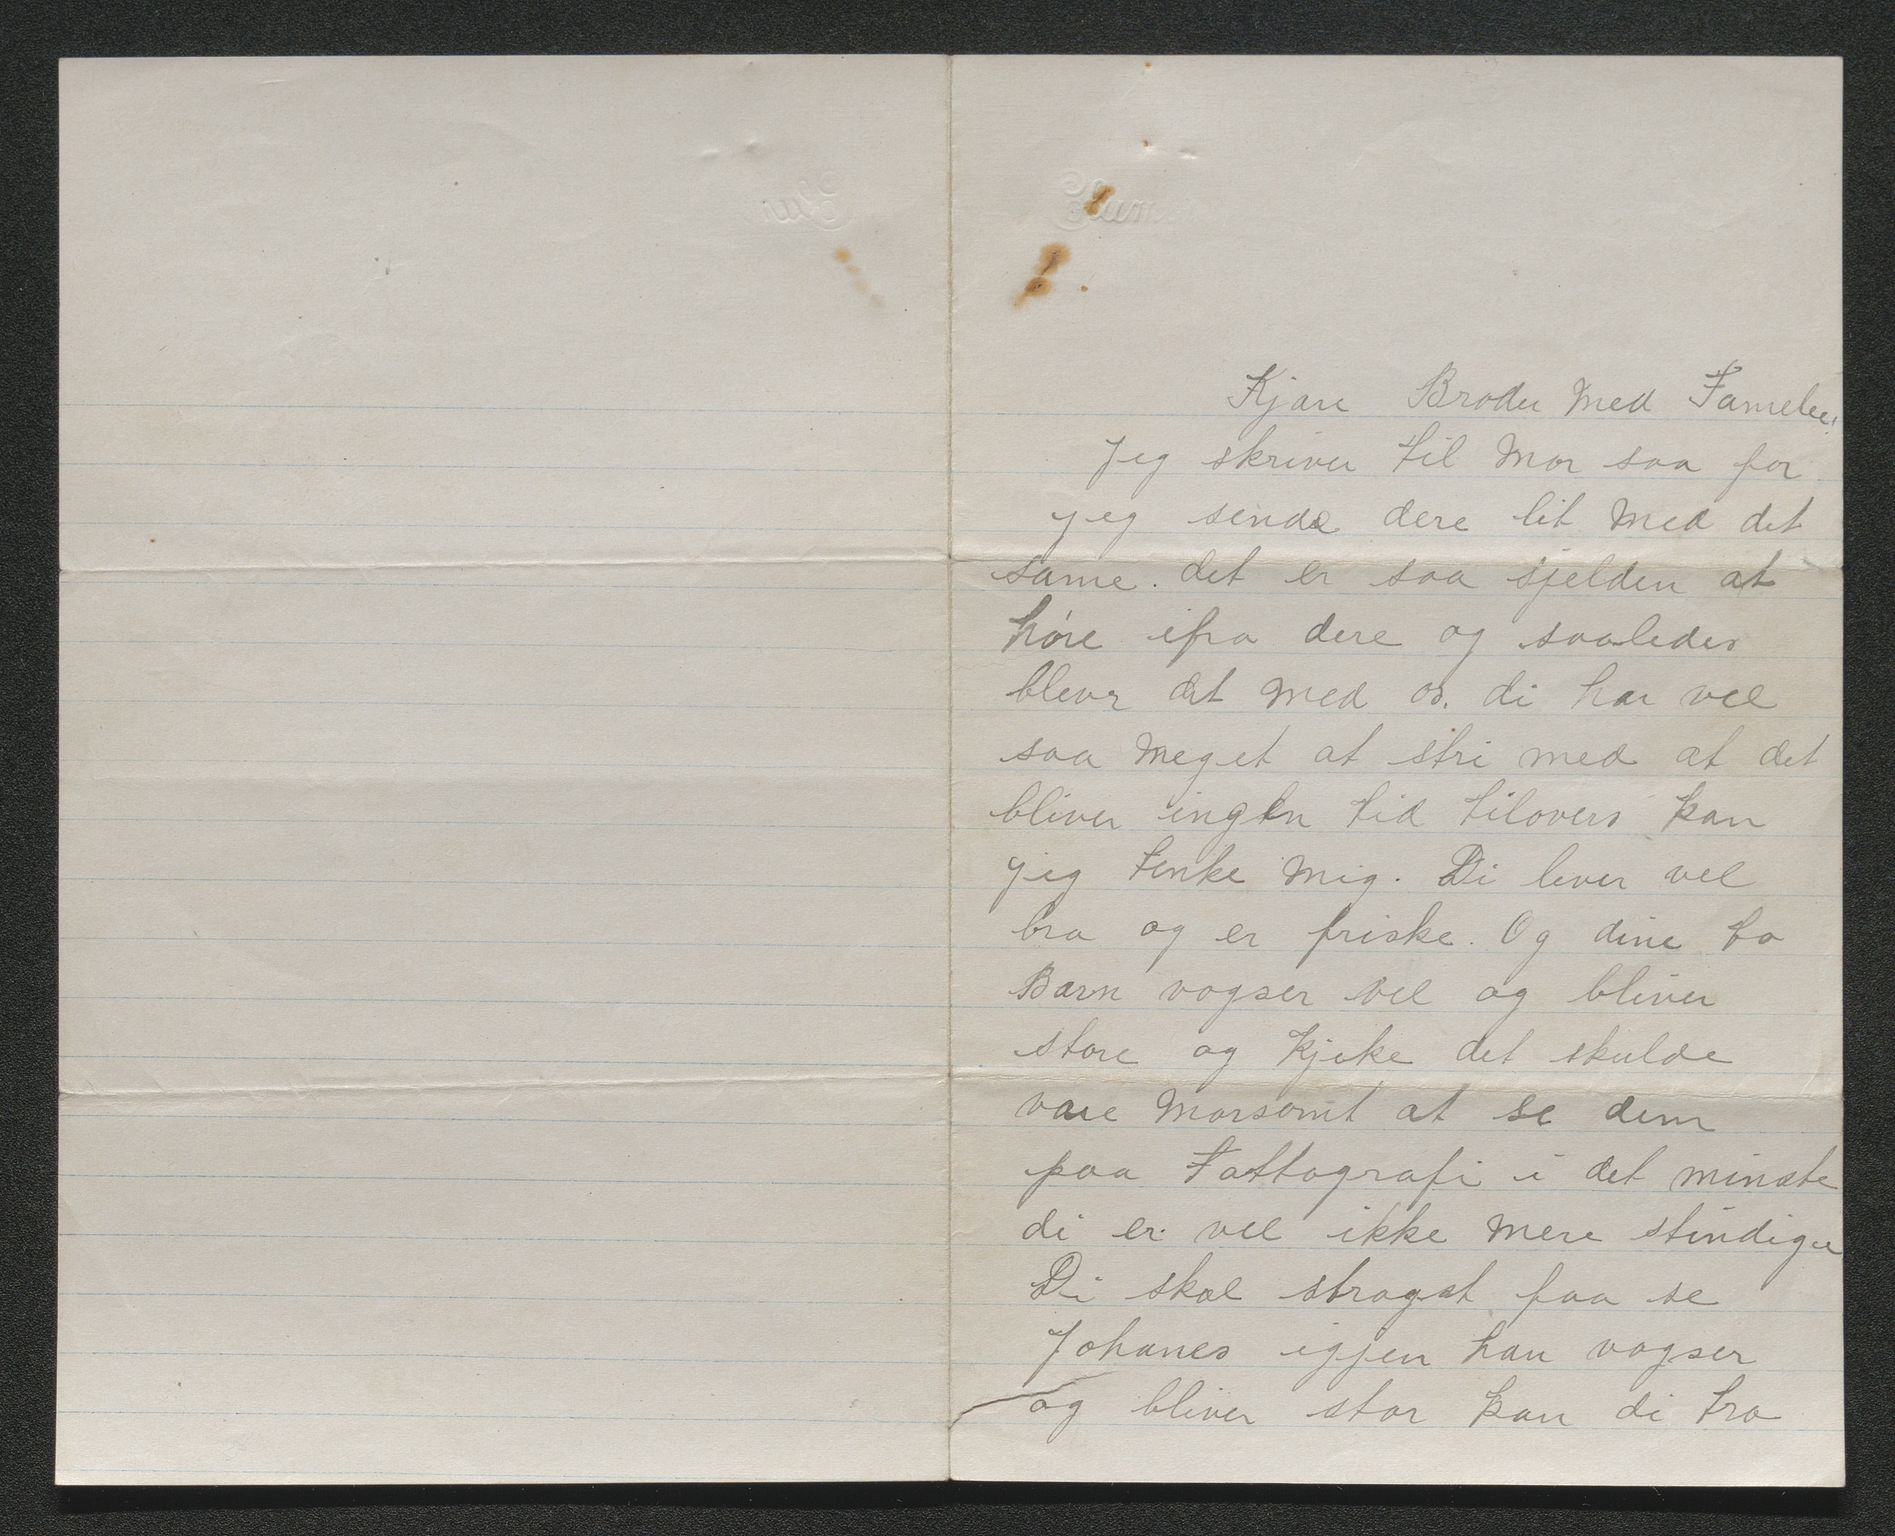 Kjære Broder Med Famelie!
Jeg skriver til Mor saa for
jeg sende dere lit Med det
same. det er saa sjelden at
høre ifra dere og saaledes
blevr det Med os. di har vel
saa Meget at stri med at det
bliver ingen tid tilovers kan
jeg tenke Mig. Di lever vel
bra og er friske. Og dine to
Barn vogser vel og bliver
store og kjeke det skulde
være Morsomt at se dem
paa Fottografi i det minste
di er vel ikke Mere stindiger
Di skal stragst faa se
Johanes igjen han vogser
og bliver stor kan di tro